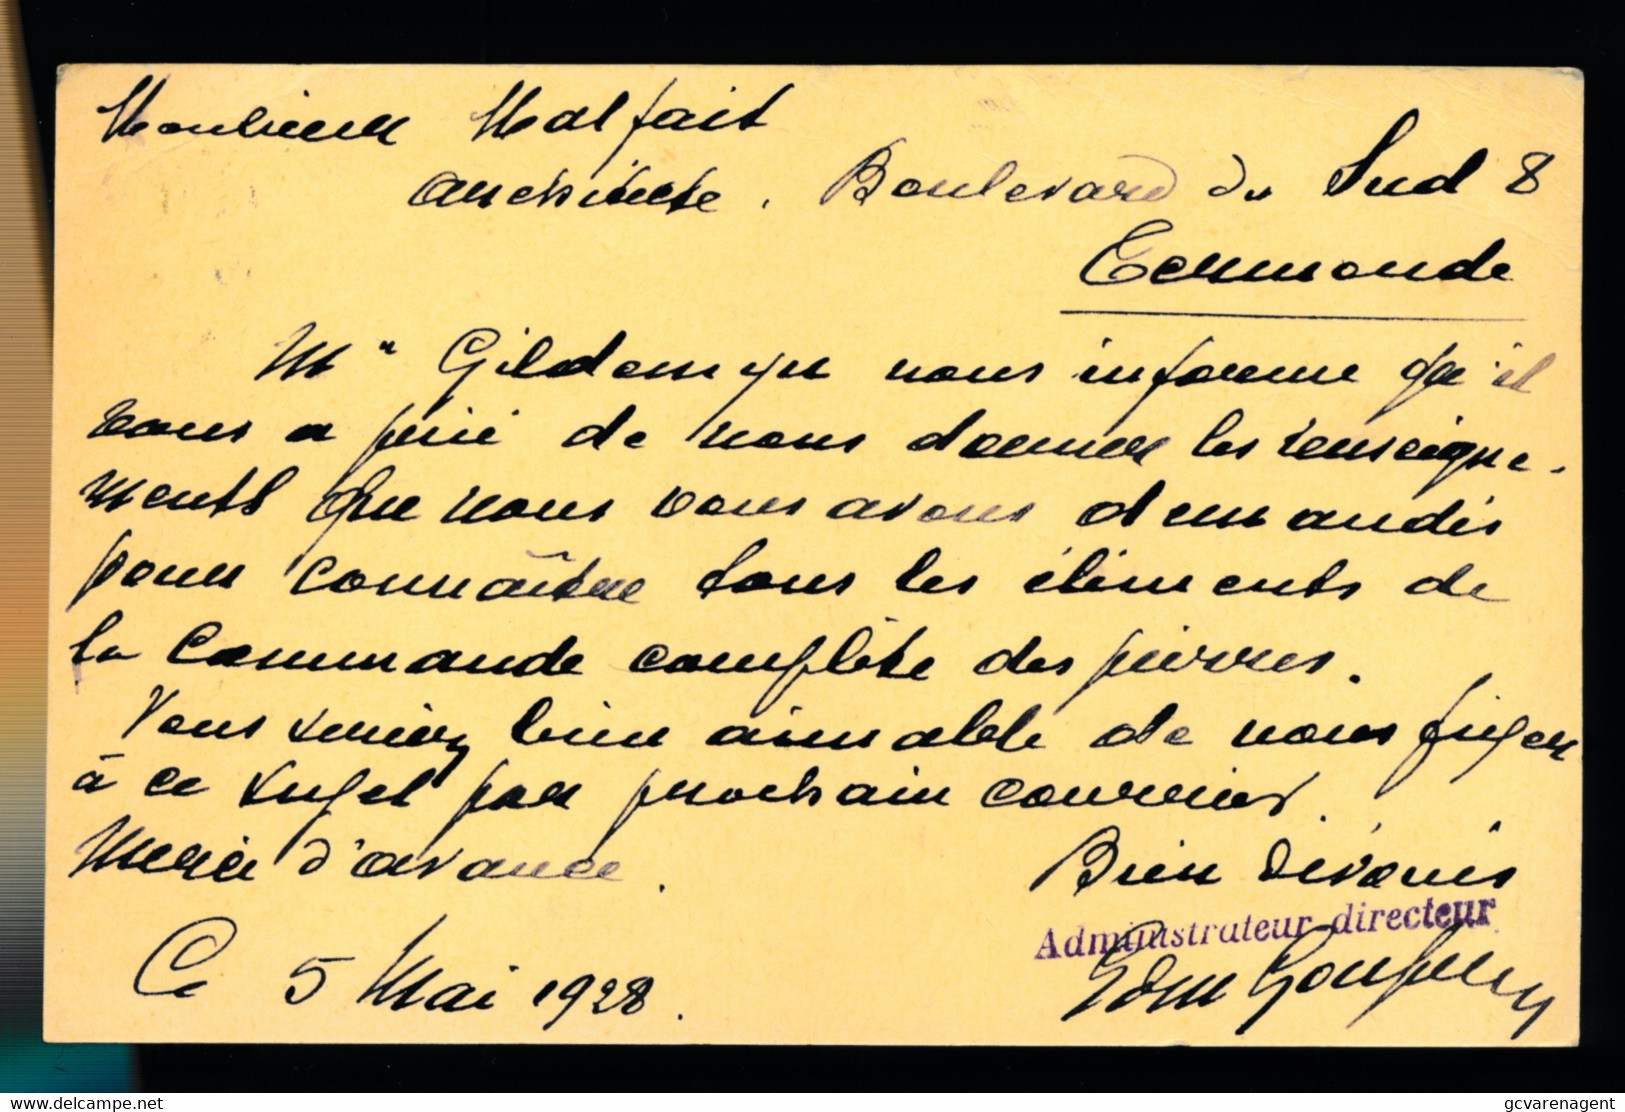 Monsieur Malfait
architecte. Boulevard du Sud 8
Termonde
Mr Gildemyn nous informe qu'il
vous a prié de nous donner les renseigne-
ments que nous vous avons demandés
pour connaître tous les éléments de
la Commande complète des pierres.
Vous seriez bien aimable de nous fixer
à ce sujet par prochain courrier.
Merci d'avance.
Bien dévoués
Administrateur-directeur
Edm
Ce 5 Mai 1928.
delcampe.net
gcvarenagent